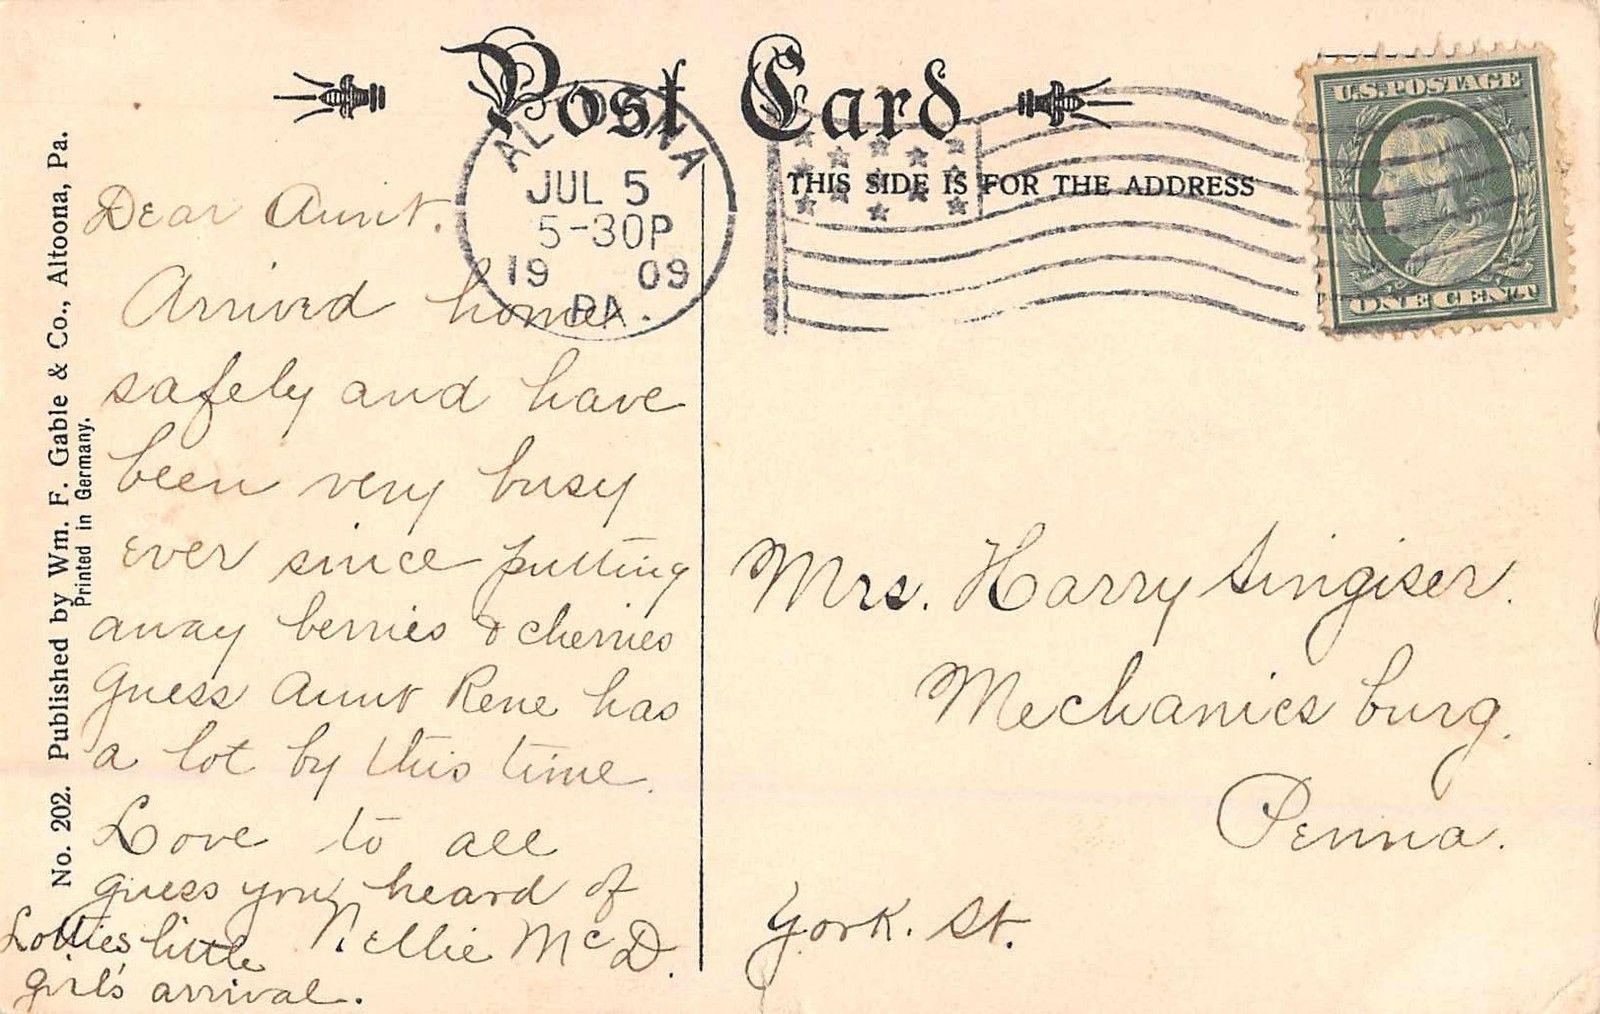 Post Card
THIS SIDE IS FOR THE ADDRESS
U.S. POSTAGE
ONE CENT
ALTOONA
JUL 5
5-30P
19 09
PA.
No. 202. Published by Wm. F. Gable & Co., Altoona, Pa.
Printed in Germany.
Dear Aunt.
Arrived home
safely and have
been very busy
ever since putting
away berries & cherries
guess Aunt Rene has
a lot by this time.
Love to all
Nellie McD.
guess you heard of
Lotties little
girl's arrival.
Mrs. Harry Singiser.
Mechanicsburg.
Penna.
York. St.